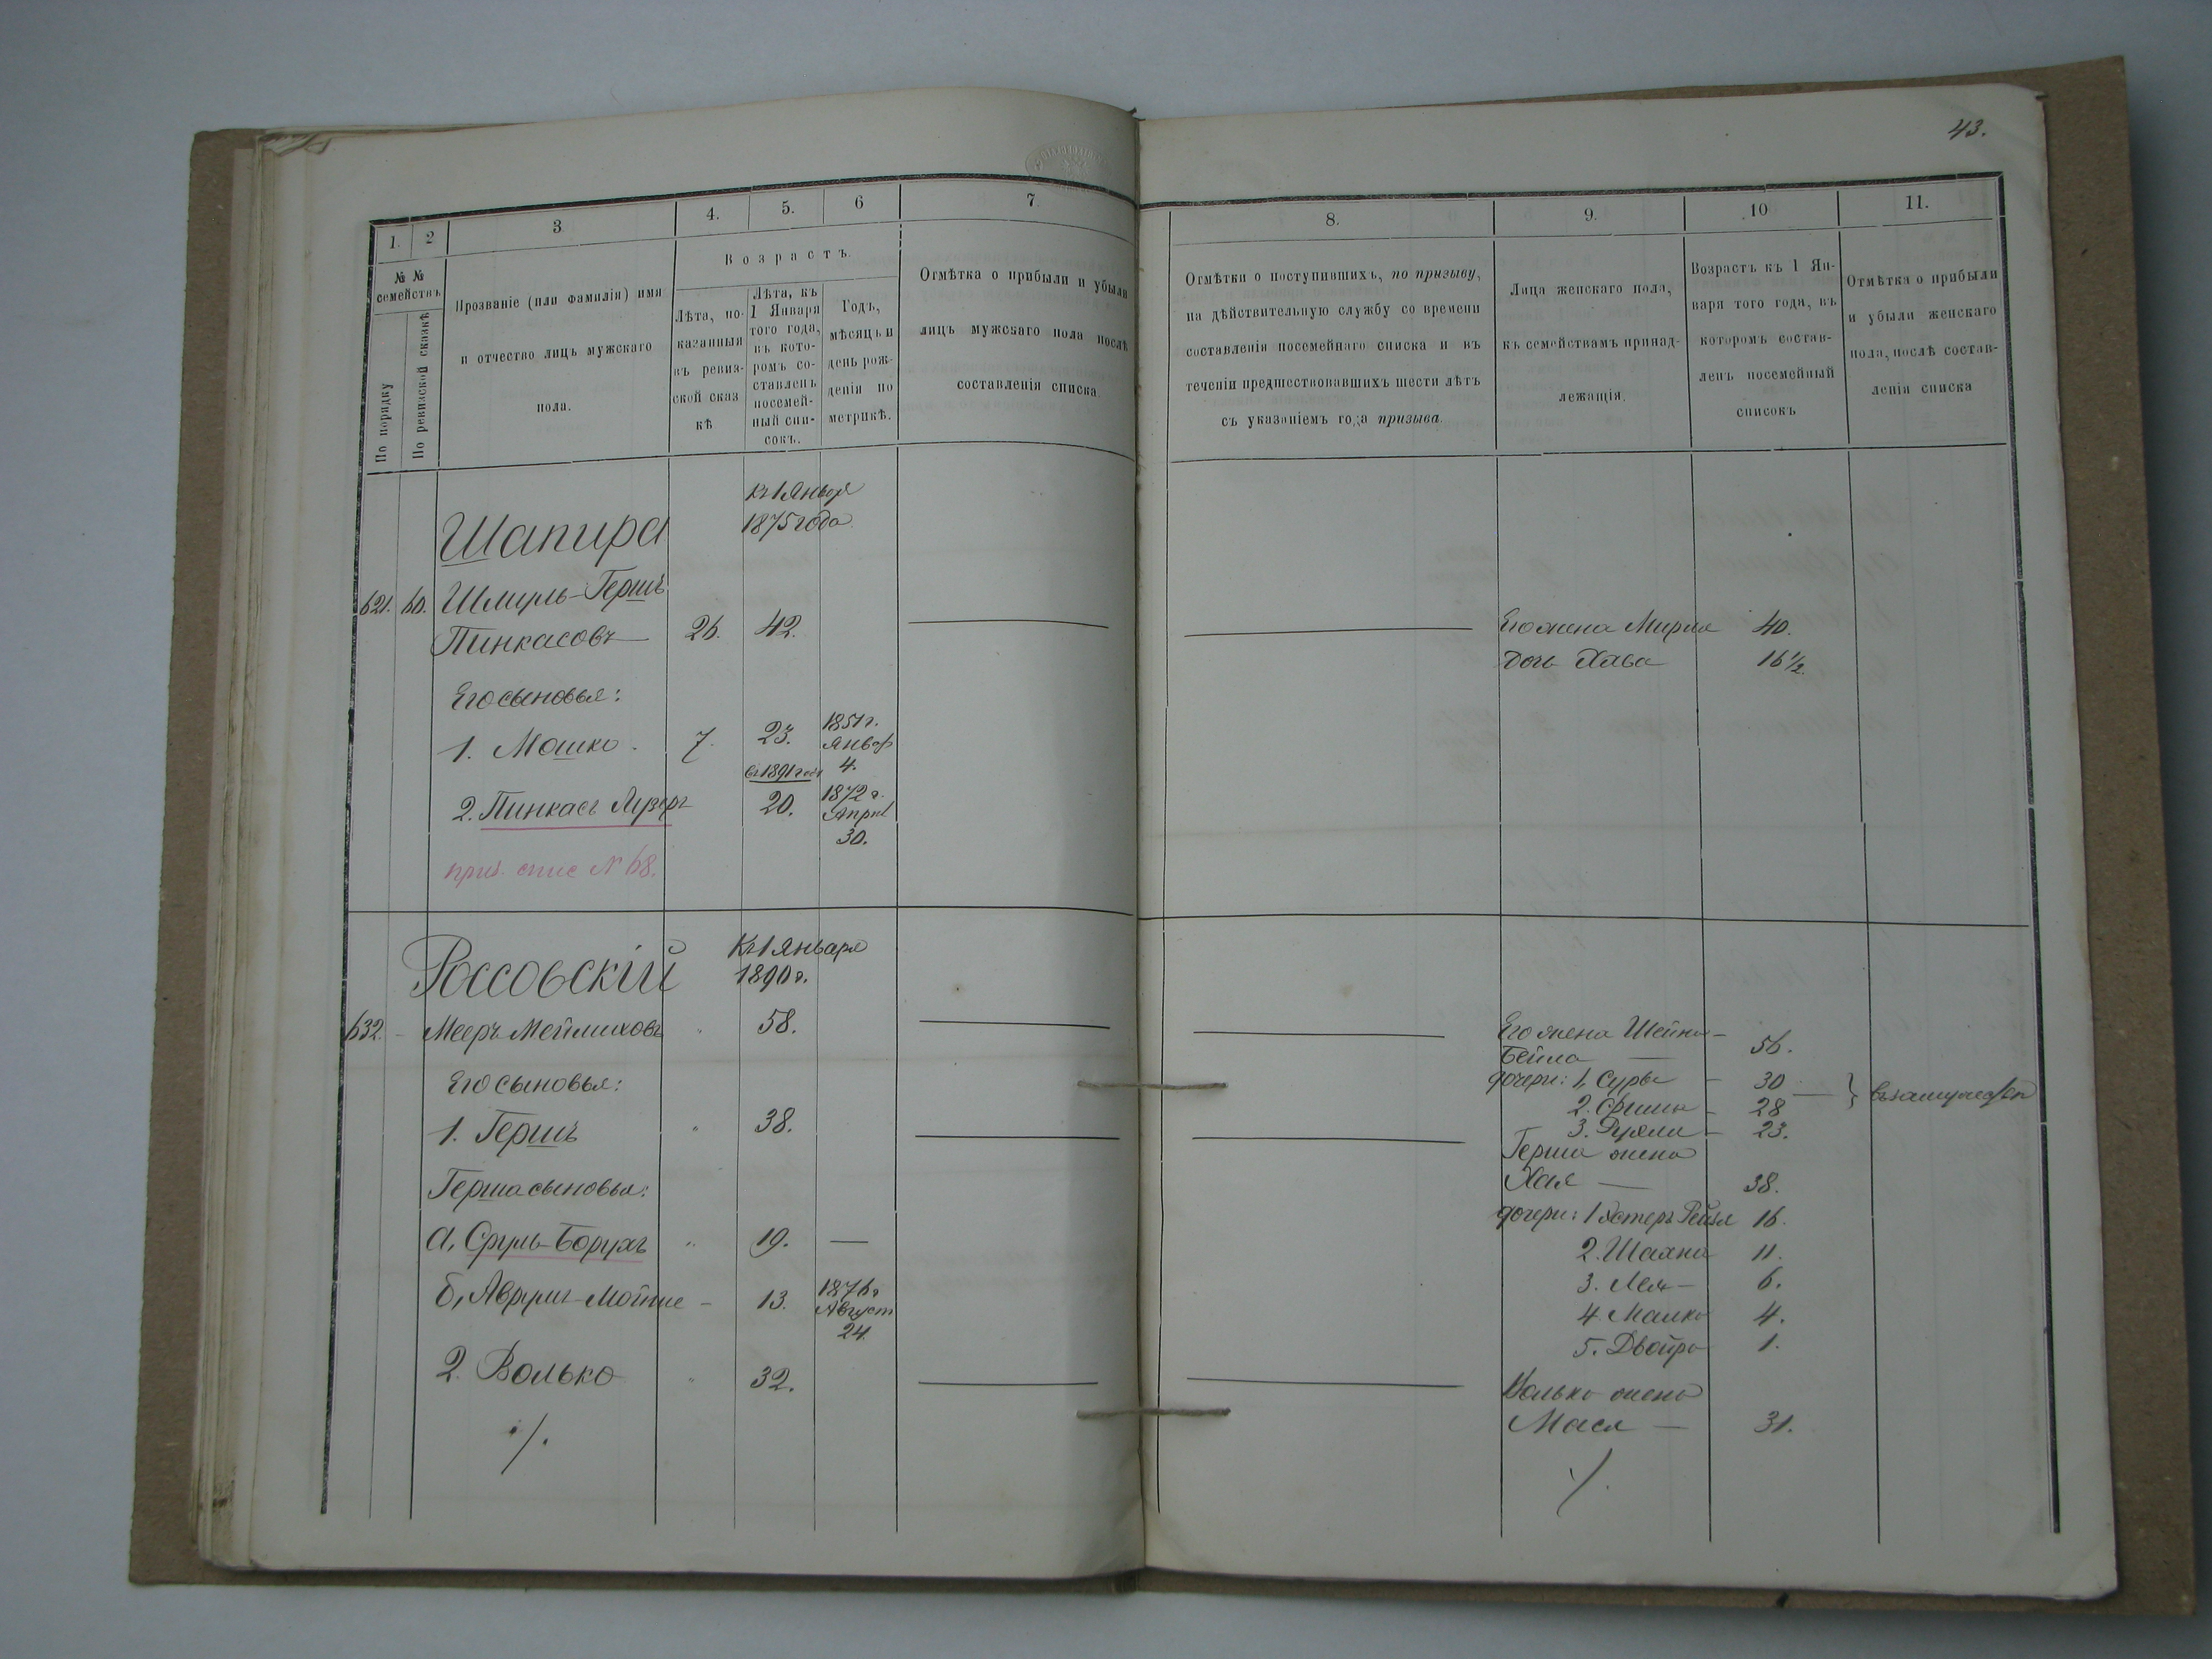 43.
1.
2
3
4.
5.
6
7.
8.
9.
10
11.
№ №
семействъ
По порядку
По ревизской сказкѣ
Прозваніе (или фамилія) имя
и отчество лицъ мужскаго
пола.
Возрастъ.
Лѣта, по-
казанныя
въ ревиз-
ской сказ
кѣ
Лѣта, къ
1 Января
того года,
въ кото-
ромъ со-
ставленъ
посемей-
ный спи-
сокъ.
Годъ,
мѣсяцъ и
день рож-
денія по
метрикѣ.
Отмѣтка о прибыли и убыли
лицъ мужскаго пола послѣ
составленія списка.
Отмѣтки о поступившихъ, по призыву,
на дѣйствительную службу со времени
составленія посемейнаго списка и въ
теченіи предшествовавшихъ шести лѣтъ
съ указаніемъ года призыва.
Лица женскаго пола,
къ семействамъ принад-
лежащія.
Возрастъ къ 1 Ян-
варя того года, въ
которомъ состав-
ленъ посемейный
списокъ
Отмѣтка о прибыли
и убыли женскаго
пола, послѣ состав-
ленія списка
Къ 1 Января
1875 года.
Шапира
621. 60. Шмуль-Гершъ
Пинкасовъ 26. 42.
Его жена Мирля 40.
Дочь Хава 16 1/2.
Его сыновья:
1. Мошко. 7. 23. 1851 г.
Январ
4.
въ 1891 году
2. Пинкасъ Лузеръ 20. 1872 г.
Април
30.
приз. спис № 68.
Россовскій
Къ 1 Января
1890 г.
632. - Мееръ Меймиховъ " 58.
Его жена Шейна-
Бейла — 56.
Его сыновья:
дочери: 1, Сура - 30
2. Фрима - 28
3. Рухля - 23.
} въ замужествѣ
1. Гершъ " 38.
Герша жена
Хая — 38.
Герша сыновья:
дочери: 1 Эстеръ Рейзя 16.
а, Сруль-Борухъ " 19. —
2. Шахна 11.
3. Лея — 6.
б, Аврумъ-Мотие - 13. 1876 г
Август
24.
4. Малка 4.
5. Двойра 1.
2. Волько " 32.
Волько жена
Мася — 31.
./.
./.